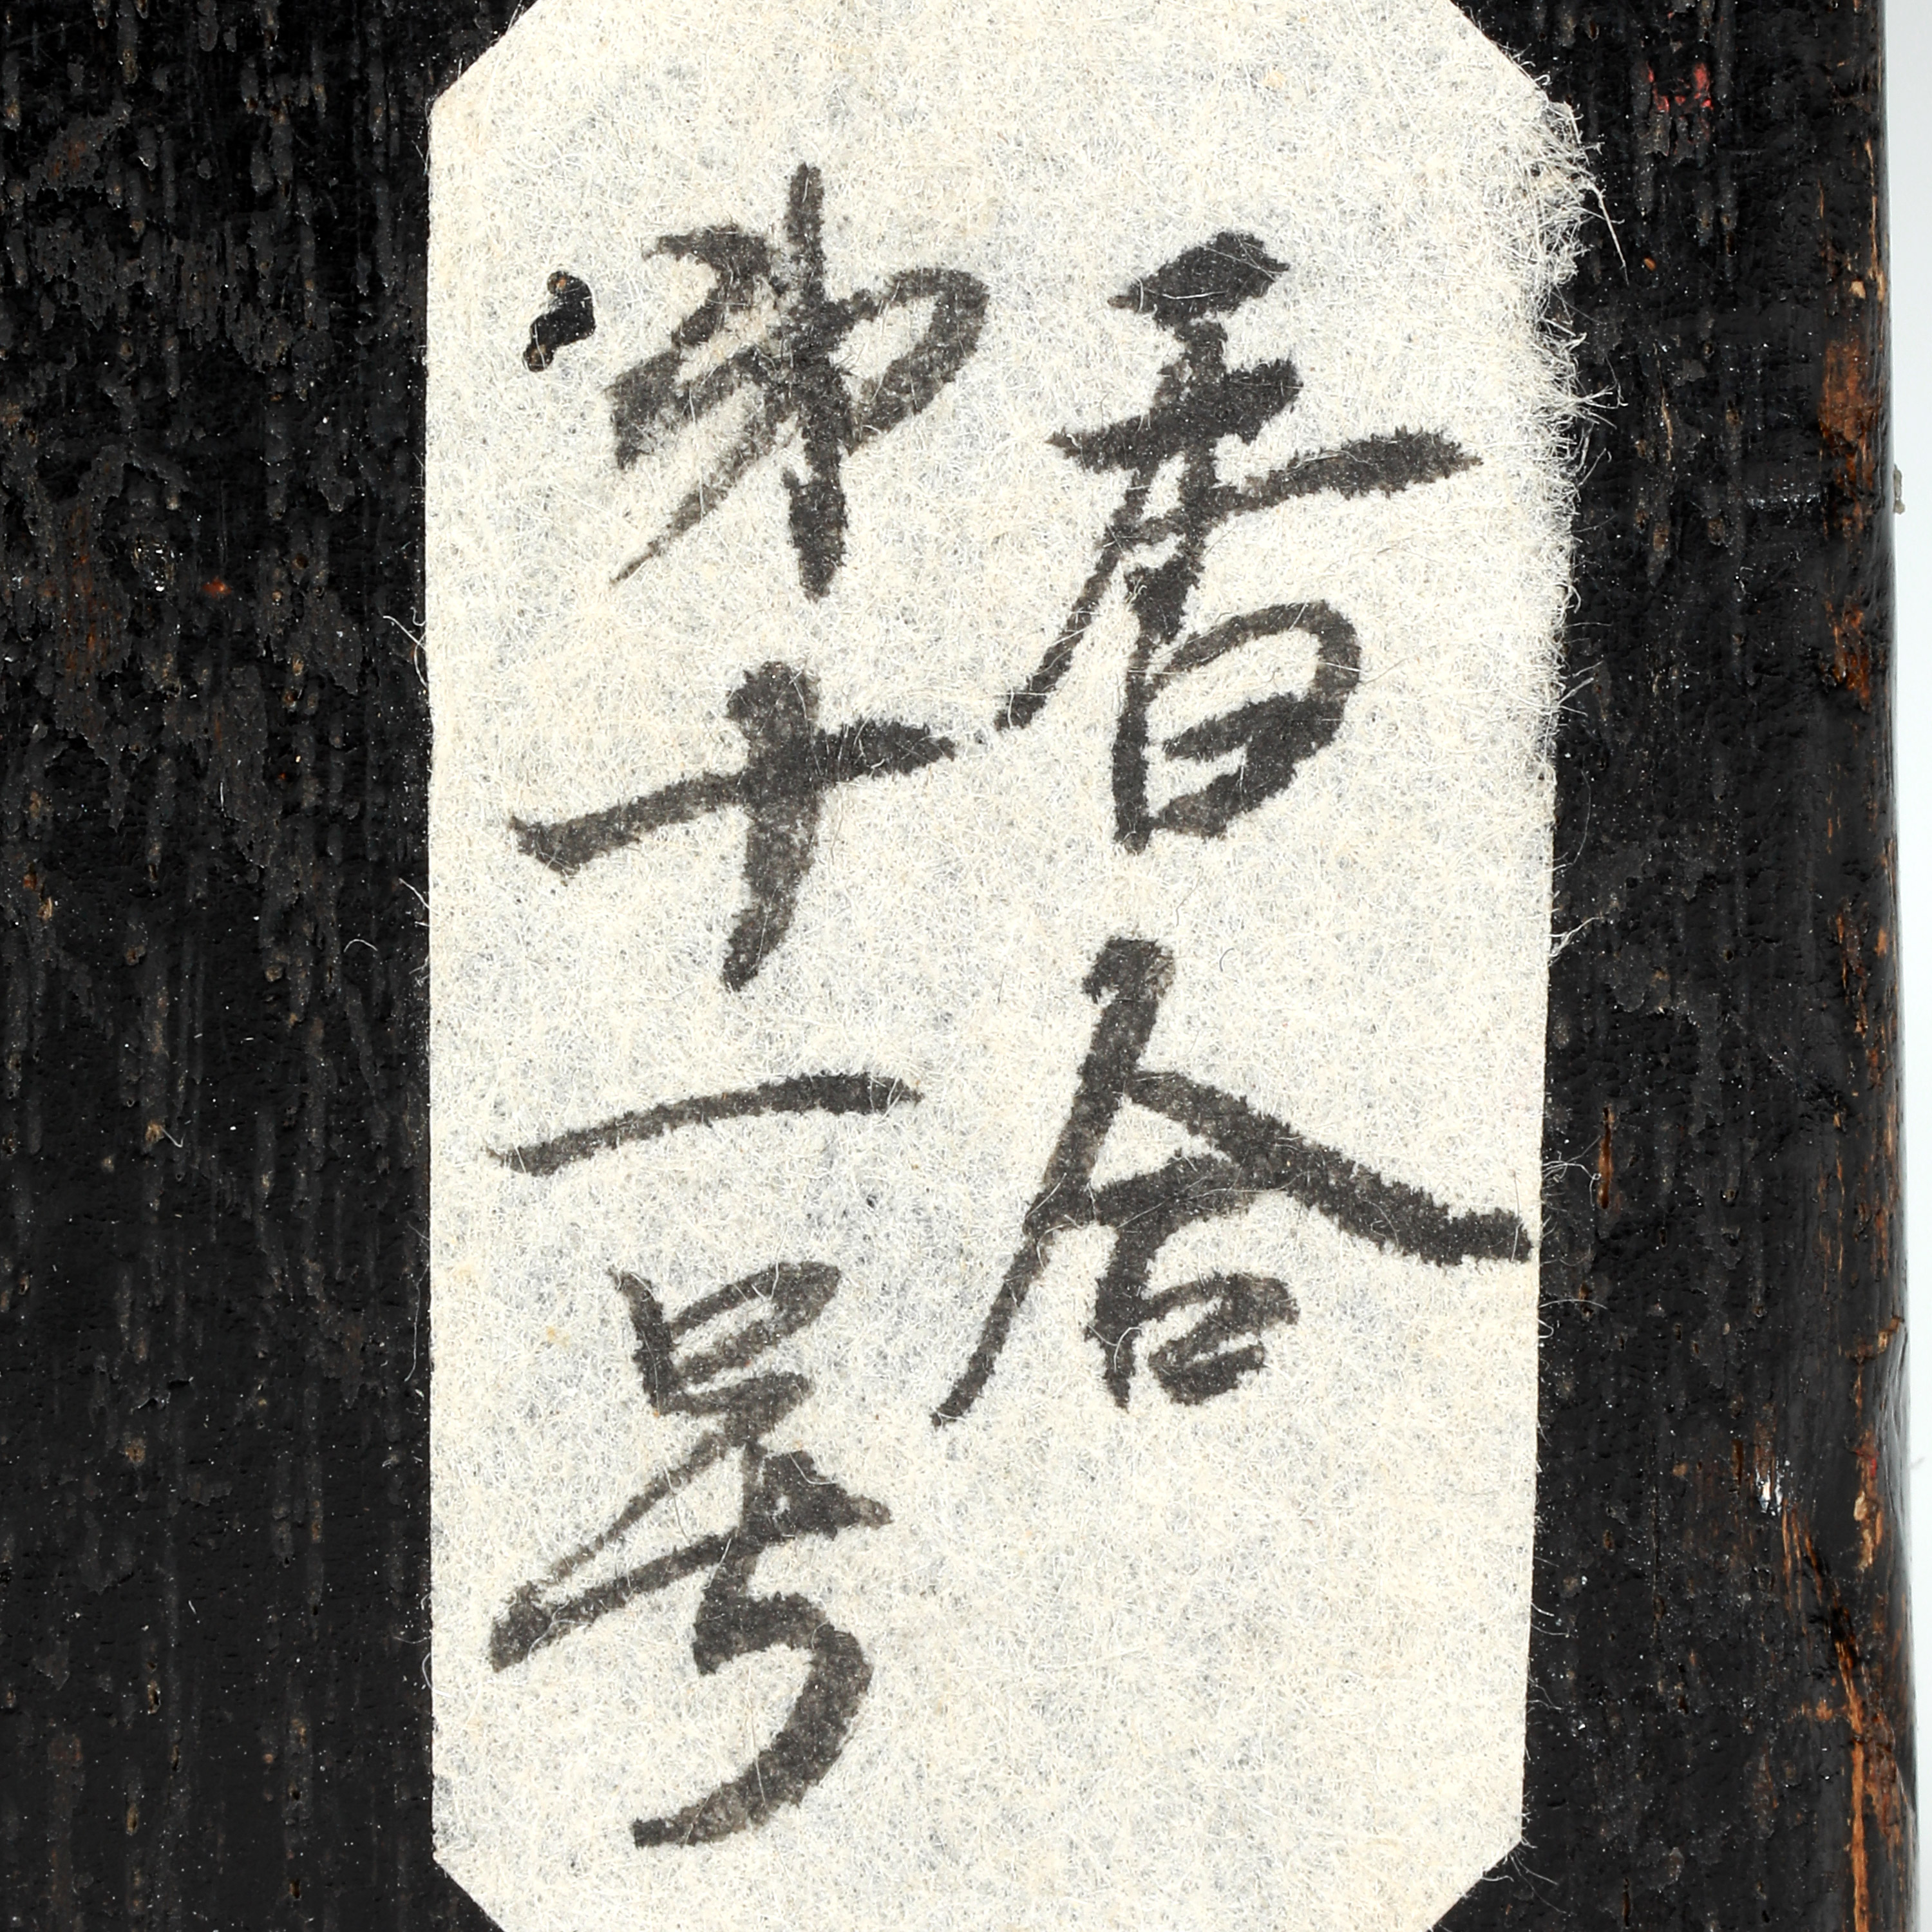 香合
第十一号